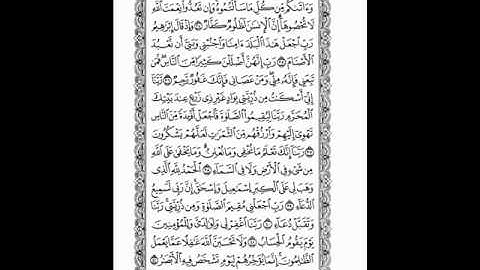 وَءَاتَىٰكُم مِّن كُلِّ مَا سَأَلْتُمُوهُ وَإِن تَعُدُّوا۟ نِعْمَتَ ٱللَّهِ
لَا تُحْصُوهَآ إِنَّ ٱلْإِنسَٰنَ لَظَلُومٌ كَفَّارٌ ٣٤ وَإِذْ قَالَ إِبْرَٰهِيمُ
رَبِّ ٱجْعَلْ هَٰذَا ٱلْبَلَدَ ءَامِنًا وَٱجْنُبْنِى وَبَنِىَّ أَن نَّعْبُدَ
ٱلْأَصْنَامَ ٣٥ رَبِّ إِنَّهُنَّ أَضْلَلْنَ كَثِيرًا مِّنَ ٱلنَّاسِ فَمَن
تَبِعَنِى فَإِنَّهُۥ مِنِّى وَمَنْ عَصَانِى فَإِنَّكَ غَفُورٌ رَّحِيمٌ ٣٦ رَّبَّنَآ
إِنِّىٓ أَسْكَنتُ مِن ذُرِّيَّتِى بِوَادٍ غَيْرِ ذِى زَرْعٍ عِندَ بَيْتِكَ
ٱلْمُحَرَّمِ رَبَّنَا لِيُقِيمُوا۟ ٱلصَّلَوٰةَ فَٱجْعَلْ أَفْـِٔدَةً مِّنَ ٱلنَّاسِ
تَهْوِىٓ إِلَيْهِمْ وَٱرْزُقْهُم مِّنَ ٱلثَّمَرَٰتِ لَعَلَّهُمْ يَشْكُرُونَ
٣٧ رَبَّنَآ إِنَّكَ تَعْلَمُ مَا نُخْفِى وَمَا نُعْلِنُ وَمَا يَخْفَىٰ عَلَى ٱللَّهِ
مِن شَىْءٍ فِى ٱلْأَرْضِ وَلَا فِى ٱلسَّمَآءِ ٣٨ ٱلْحَمْدُ لِلَّهِ ٱلَّذِى
وَهَبَ لِى عَلَى ٱلْكِبَرِ إِسْمَٰعِيلَ وَإِسْحَٰقَ إِنَّ رَبِّى لَسَمِيعُ
ٱلدُّعَآءِ ٣٩ رَبِّ ٱجْعَلْنِى مُقِيمَ ٱلصَّلَوٰةِ وَمِن ذُرِّيَّتِى رَبَّنَا
وَتَقَبَّلْ دُعَآءِ ٤٠ رَبَّنَا ٱغْفِرْ لِى وَلِوَٰلِدَىَّ وَلِلْمُؤْمِنِينَ
يَوْمَ يَقُومُ ٱلْحِسَابُ ٤١ وَلَا تَحْسَبَنَّ ٱللَّهَ غَٰفِلًا عَمَّا يَعْمَلُ
ٱلظَّٰلِمُونَ إِنَّمَا يُؤَخِّرُهُمْ لِيَوْمٍ تَشْخَصُ فِيهِ ٱلْأَبْصَٰرُ ٤٢